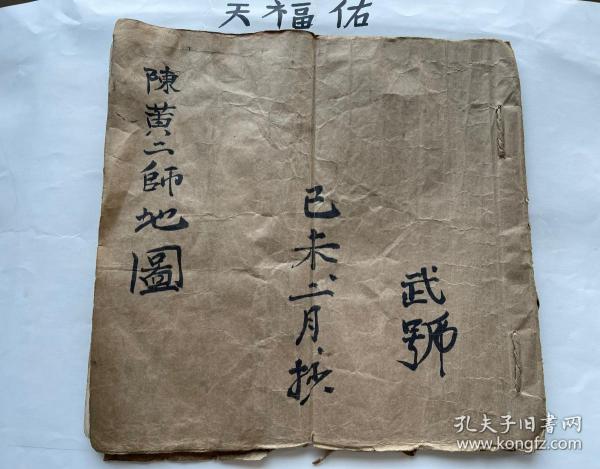 天福佑
武號
己未二月抄
陳黃二師地圖
孔夫子旧书网
www.kongfz.com